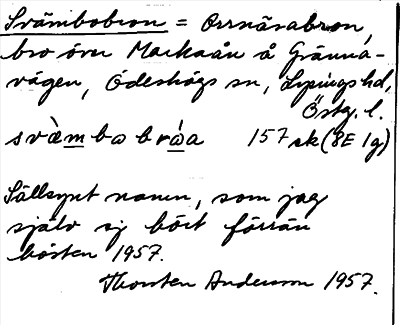 Svämbobron = Orrnäsabron,
bro över Markaån å Gränna-
vägen, Ödeshögs sn, Lysings hd,
Östg. l.
svàmbωbrὼa 157 sk (8E 1g)
Sällsynt namn, som jag
själv ej hört förrän
hösten 1957.
Thorsten Andersson 1957.